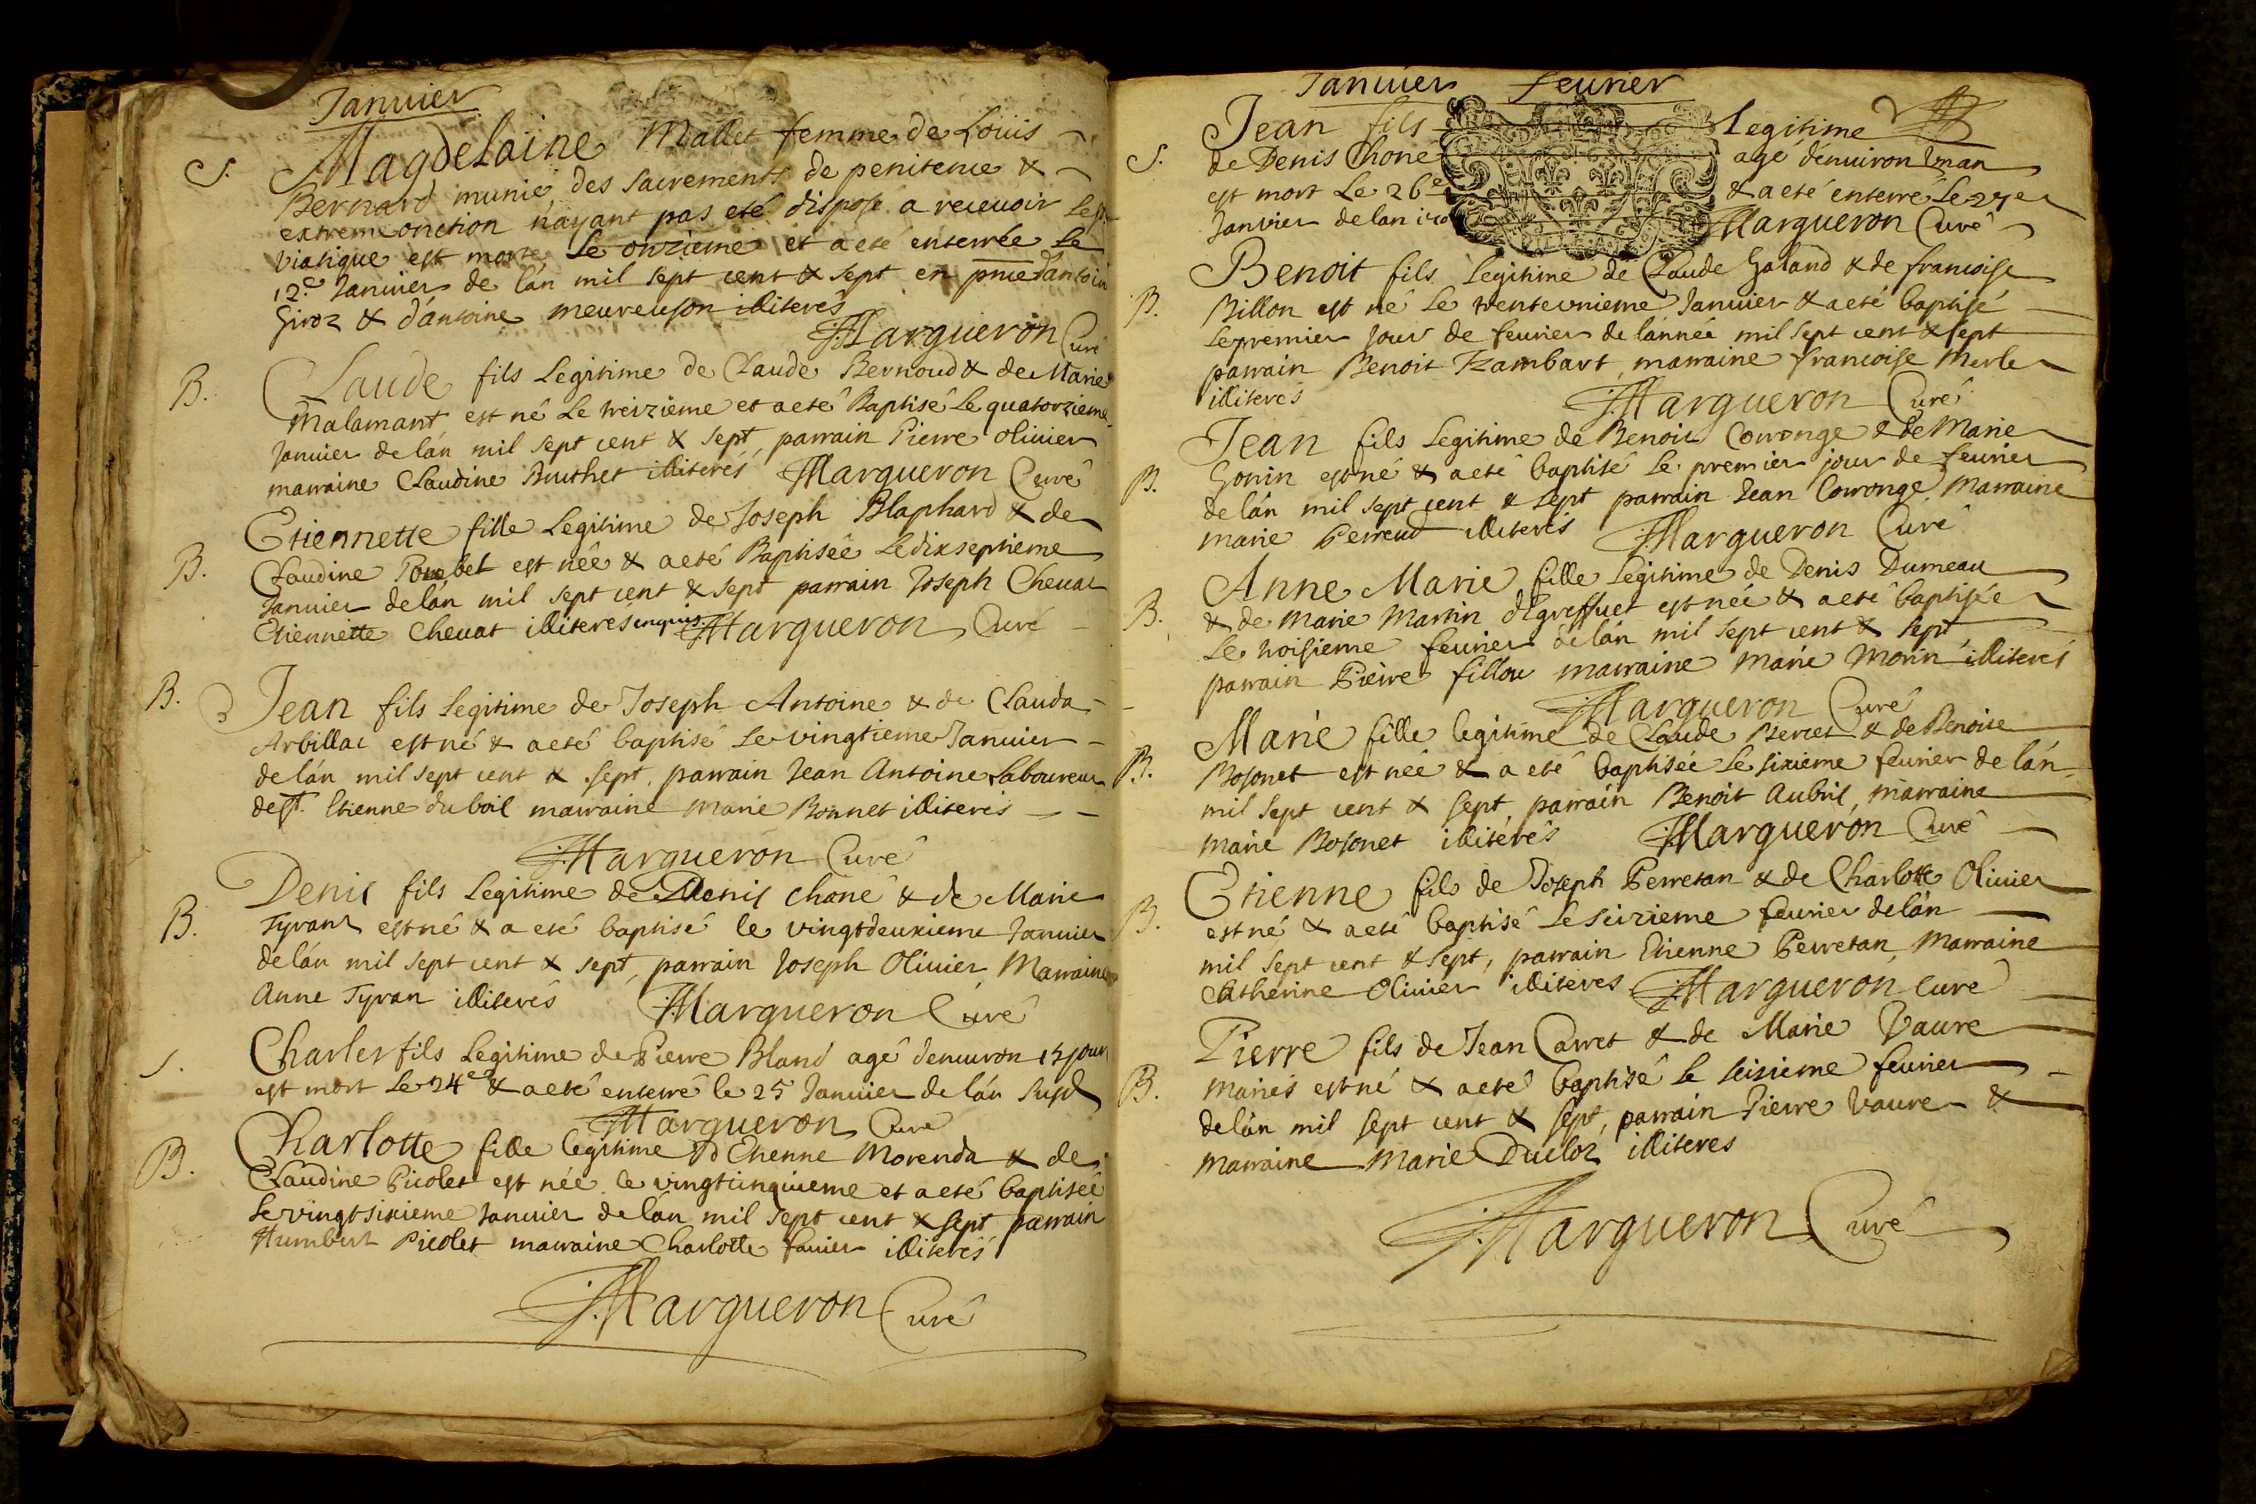 Januier
S. Magdelaine Mallet femme de Loüis
Bernard munie des sacrements de penitence &
extremeonction n'ayant pas eté dispose a recevoir le st
viatique est morte le onzieme et a eté enterrée le
12e Januier de lán mil sept cent & sept en pnce d'antoine
Giroz & d'antoine meureuson illiterés
Margueron Curé
B. Claude fils Legitime de Claude Bernoud & de Marie
Malamant est né Le treizieme et a eté Baptisé Le quatorzieme
Januier de lán mil sept cent & sept, parrain Pierre oliuier
marraine Claudine Bruthet illiterés Margueron Curé
Etiennette fille Legitime de Joseph Blaphard & de
B. Claudine est née & a eté Baptisée Le dixseptieme
Januier de lán mil sept cent & sept parrain Joseph Cheuat
Etiennette Cheuat illiterés enquis Margueron Curé
B. Jean fils Legitime de Joseph Antoine & de Clauda
Arbillat est né & a eté baptisé Le vingtieme Januier
de lán mil sept cent & sept, parrain Jean Antoine Laboureur
de st. Etienne du bois marraine Marie Bonnet illiterés
Margueron Curé
Denis fils Legitime de Denis Chone & de Marie
B. Tyrant est né & a eté baptisé le vingtdeuxieme Januier
de lán mil sept cent & sept, parrain Joseph Oliuier Marraine
Anne Tyran illiterés Margueron Curé
S. Charles fils Legitime de Pierre Bland agé denuiron 15 jour
est mort Le 24e & a eté enterré le 25 Januier de lán susd
Margueron Curé
Charlotte fille legitime d'Etienne Morenda & de
B. Claudine Picolet est née le vingtcinquieme et a eté baptisée
Le vingtsixieme Januier de lán mil sept cent & sept parrain
Humbert Picolet marraine Charlotte fauier illiterés
Margueron Curé
Januier feurier
Jean fils Legitime
S. de Denis Chone agé dénuiron Vn an
est mort Le 26e & a eté enterré Le 27e
Januier de lan Margueron Curé
Benoit fils Legitime de Claude Galand & de francoise
B. Billon est né Le trentevnieme Januier & a eté baptisé
Le premier jour de feurier de lánnée mil sept cent & sept
parrain Benoit Rambart, marraine francoise Merle
illiterés Margueron Curé
Jean fils Legitime de Benoit Couronge & de Marie
B. Gonin est né & a eté baptisé Le premier jour de feurier
de lán mil sept cent & sept parrain Jean Couronge, Marraine
Marie Perraud illiterés Margueron Curé
Anne Marie fille Legitime de Denis Dumeau
B. & de Marie Martin d'Egreffuet est née & a eté baptisée
Le troisieme feurier de lán mil sept cent & sept
parrain Pierre fillou marraine Marie Morin illiterés
Margueron Curé
Marie fille legitime de Claude Bercet & de Benoite
B. Bosonet est née & a eté baptisée Le sixieme feurier de lán
mil sept cent & sept parrain Benoit Aubril, marraine
Marie Bosonet illiterés Margueron Curé
Etienne fils de Joseph Perretan & de Charlotte Oliuier
B. est né & a eté baptisé Le seizieme feurier de lán
mil sept cent & sept, parrain Etienne Perretan, Marraine
Catherine Oliuier illiteres Margueron Curé
Pierre fils de Jean Carret & de Marie Vaure
B. mariés est né & a eté baptisé le seizieme feurier
de lán mil sept cent & sept, parrain Pierre Vaure &
marraine Marie Ducloz illiteres
Margueron Curé